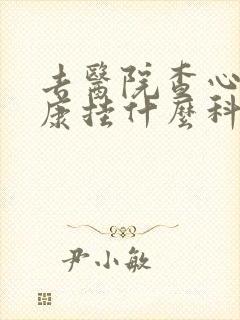 去醫院查心
康挂什麼科
尹小敏